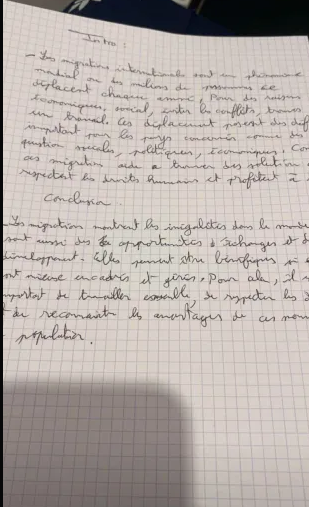 Intro :
- Les migrations internationales sont un phénomène
mondial où des millions de personnes se
déplacent chaque année, Pour des raisons
économiques, social, éviter les conflits, trouver
un travail. Ces déplacement posent des déf
important pour les pays concernés comme des
question sociales, politiques, économiques. Com
ces migration aide a trouver des solution
respectent les droits humains et profitent à
Conclusion.
- Les migration montrent les inégalités dans le monde
sont aussi des opportunités d'échanges et d
développement. Elles peuvent être bénéfiques si
sont mieux encadrés et gérés. Pour cela, il
important de travailler ensemble, de respecter les d
de reconnaître les avantages de ces mou
population.